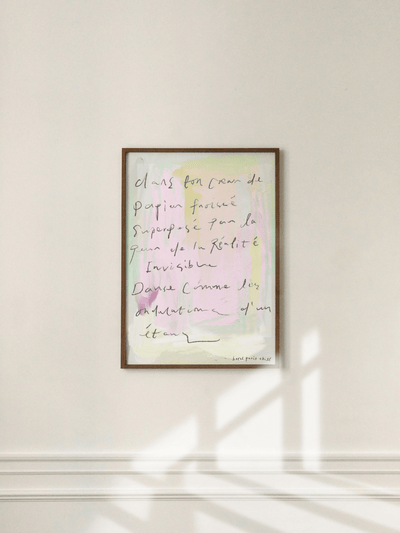 dans ton cœur de
papier froissé
Superposé
de la Réalité
Invisible
Danse Comme les
ondulations d'un
étang